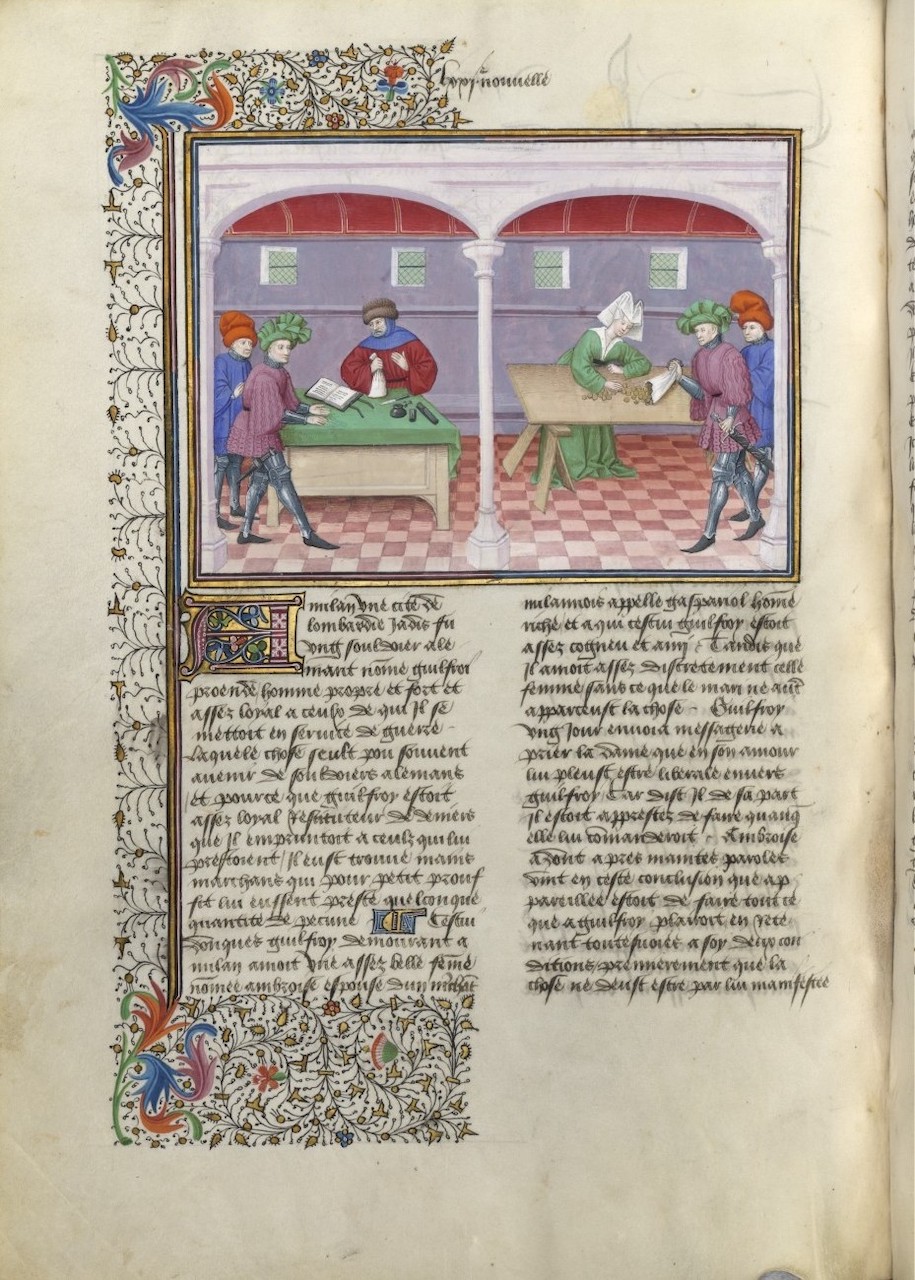 nouuelle
A milan vne cite de
lombardie Jadis fu
vng souldoier ale
mant nōme guilfroi
proenze homme propre et fort et
assez loyal a ceulx de qui Il se
mettoit en seruice de guerre
laquele chose seult pou souuent
auenir de souldoiers alemans
et pource que guilfroy estoit
assez loyal restituteur de deniers
que Il empruntoit a ceulz qui lui
prestoient / Il eust trouue mains
marchans qui pour petit prouf
fit lui eussent preste quelconque
quantite de pecune Cestui
donques guilfroy demourant a
milan amoit vne assez belle fēme
nōmee ambroise espouse dun mchāt
milannois appelle gaspariol home
riche et a qui cestui guilfroy estoit
assez cogneu et ami Tandis que
Il amoit assez discretement celle
femme sans ce que le mari ne autr
apparceust la chose Guilfroy
vng Jour enuoia messagerie a
prier la dame que en son amour
lui pleust estre liberale enuers
guilfroy Car dist Il de sa part
Il estoit apprestez de faire quanq
elle lui cōmanderoit Ambroise
adont apres maintes paroles
vint en ceste conclusion que ap
pareillee estoit de faire tout ce
que a guilfroy plairoit en rete
nant toutesuoies a soy deux con
ditions premierement que la
chose ne deust estre par lui manifestee